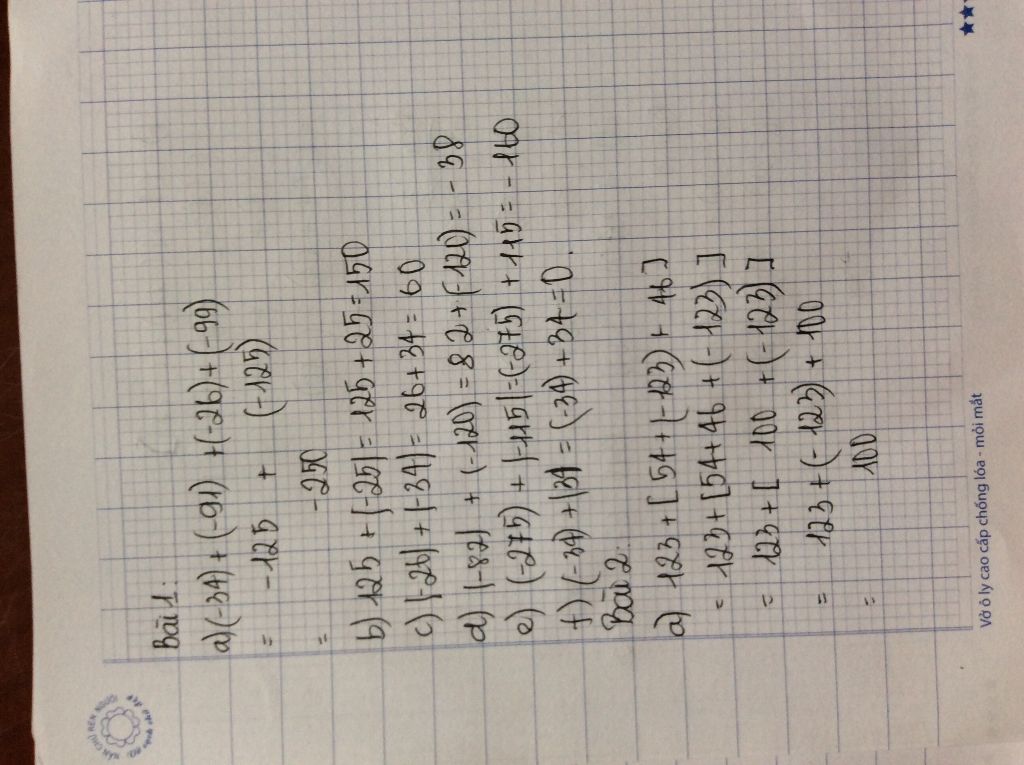 Bài 1:
a) (-34) + (-91) + (-26) + (-99)
= -125 + (-125)
= -250
b) 125 + |-25| = 125 + 25 = 150
c) |-26| + |-34| = 26 + 34 = 60
d) |-82| + (-120) = 82 + (-120) = -38
e) (-275) + |-115| = (-275) + 115 = -160
f) (-34) + |34| = (-34) + 34 = 0.
Bài 2:
a) 123 + [54 + (-123) + 46]
= 123 + [54 + 46 + (-123)]
= 123 + [100 + (-123)]
= 123 + (-123) + 100
= 100
Vở ô ly cao cấp chống lóa - mỏi mắt